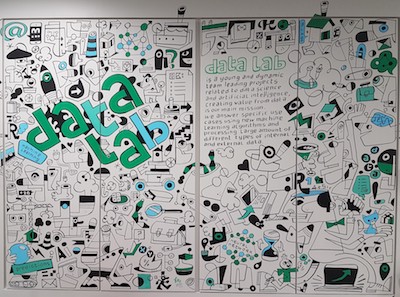 data
lab
data lab
is a young and dynamic
team leading projects
related to data science
and artificial intelligence,
creating value from data
our main mission:
is a answer specific internal
cases using new machine
Learning algorithms and
processing large amount of
different types of internal
and external data